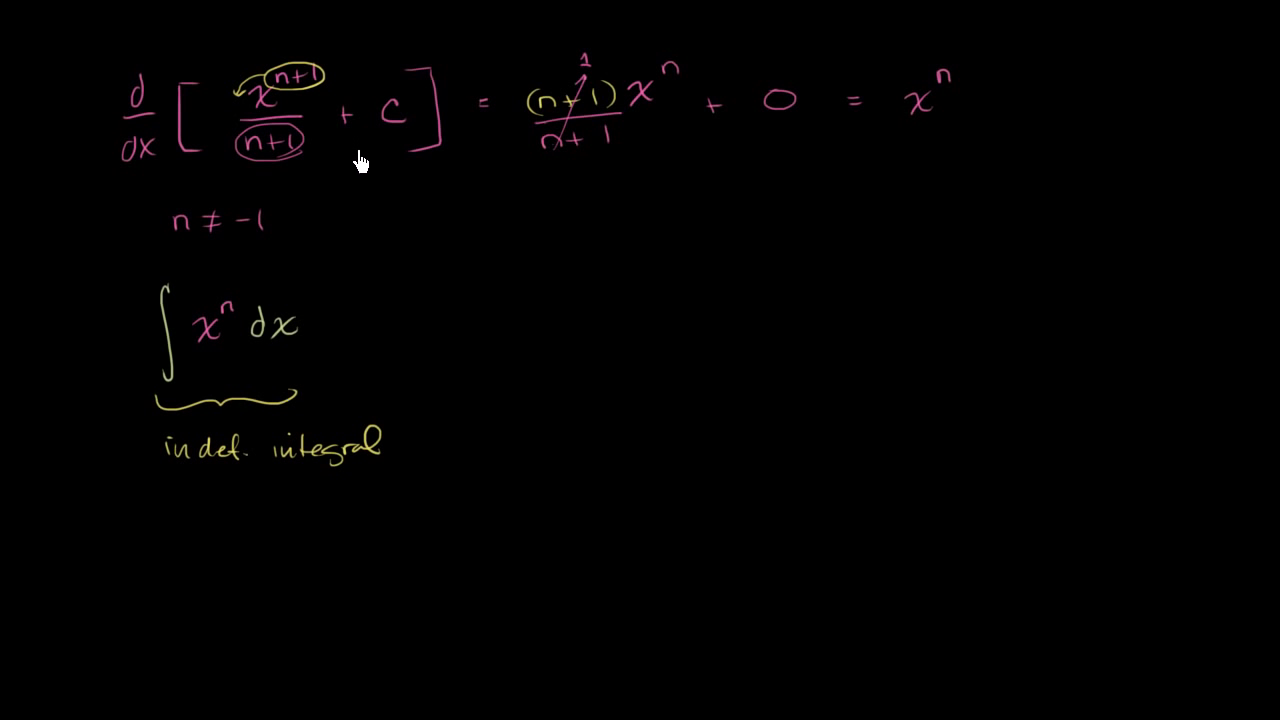 d/dx [ x^(n+1)/(n+1) + C ] = (n+1)/(n+1) 1 x^n + 0 = x^n
n ≠ -1
∫ x^n dx
indef. integral